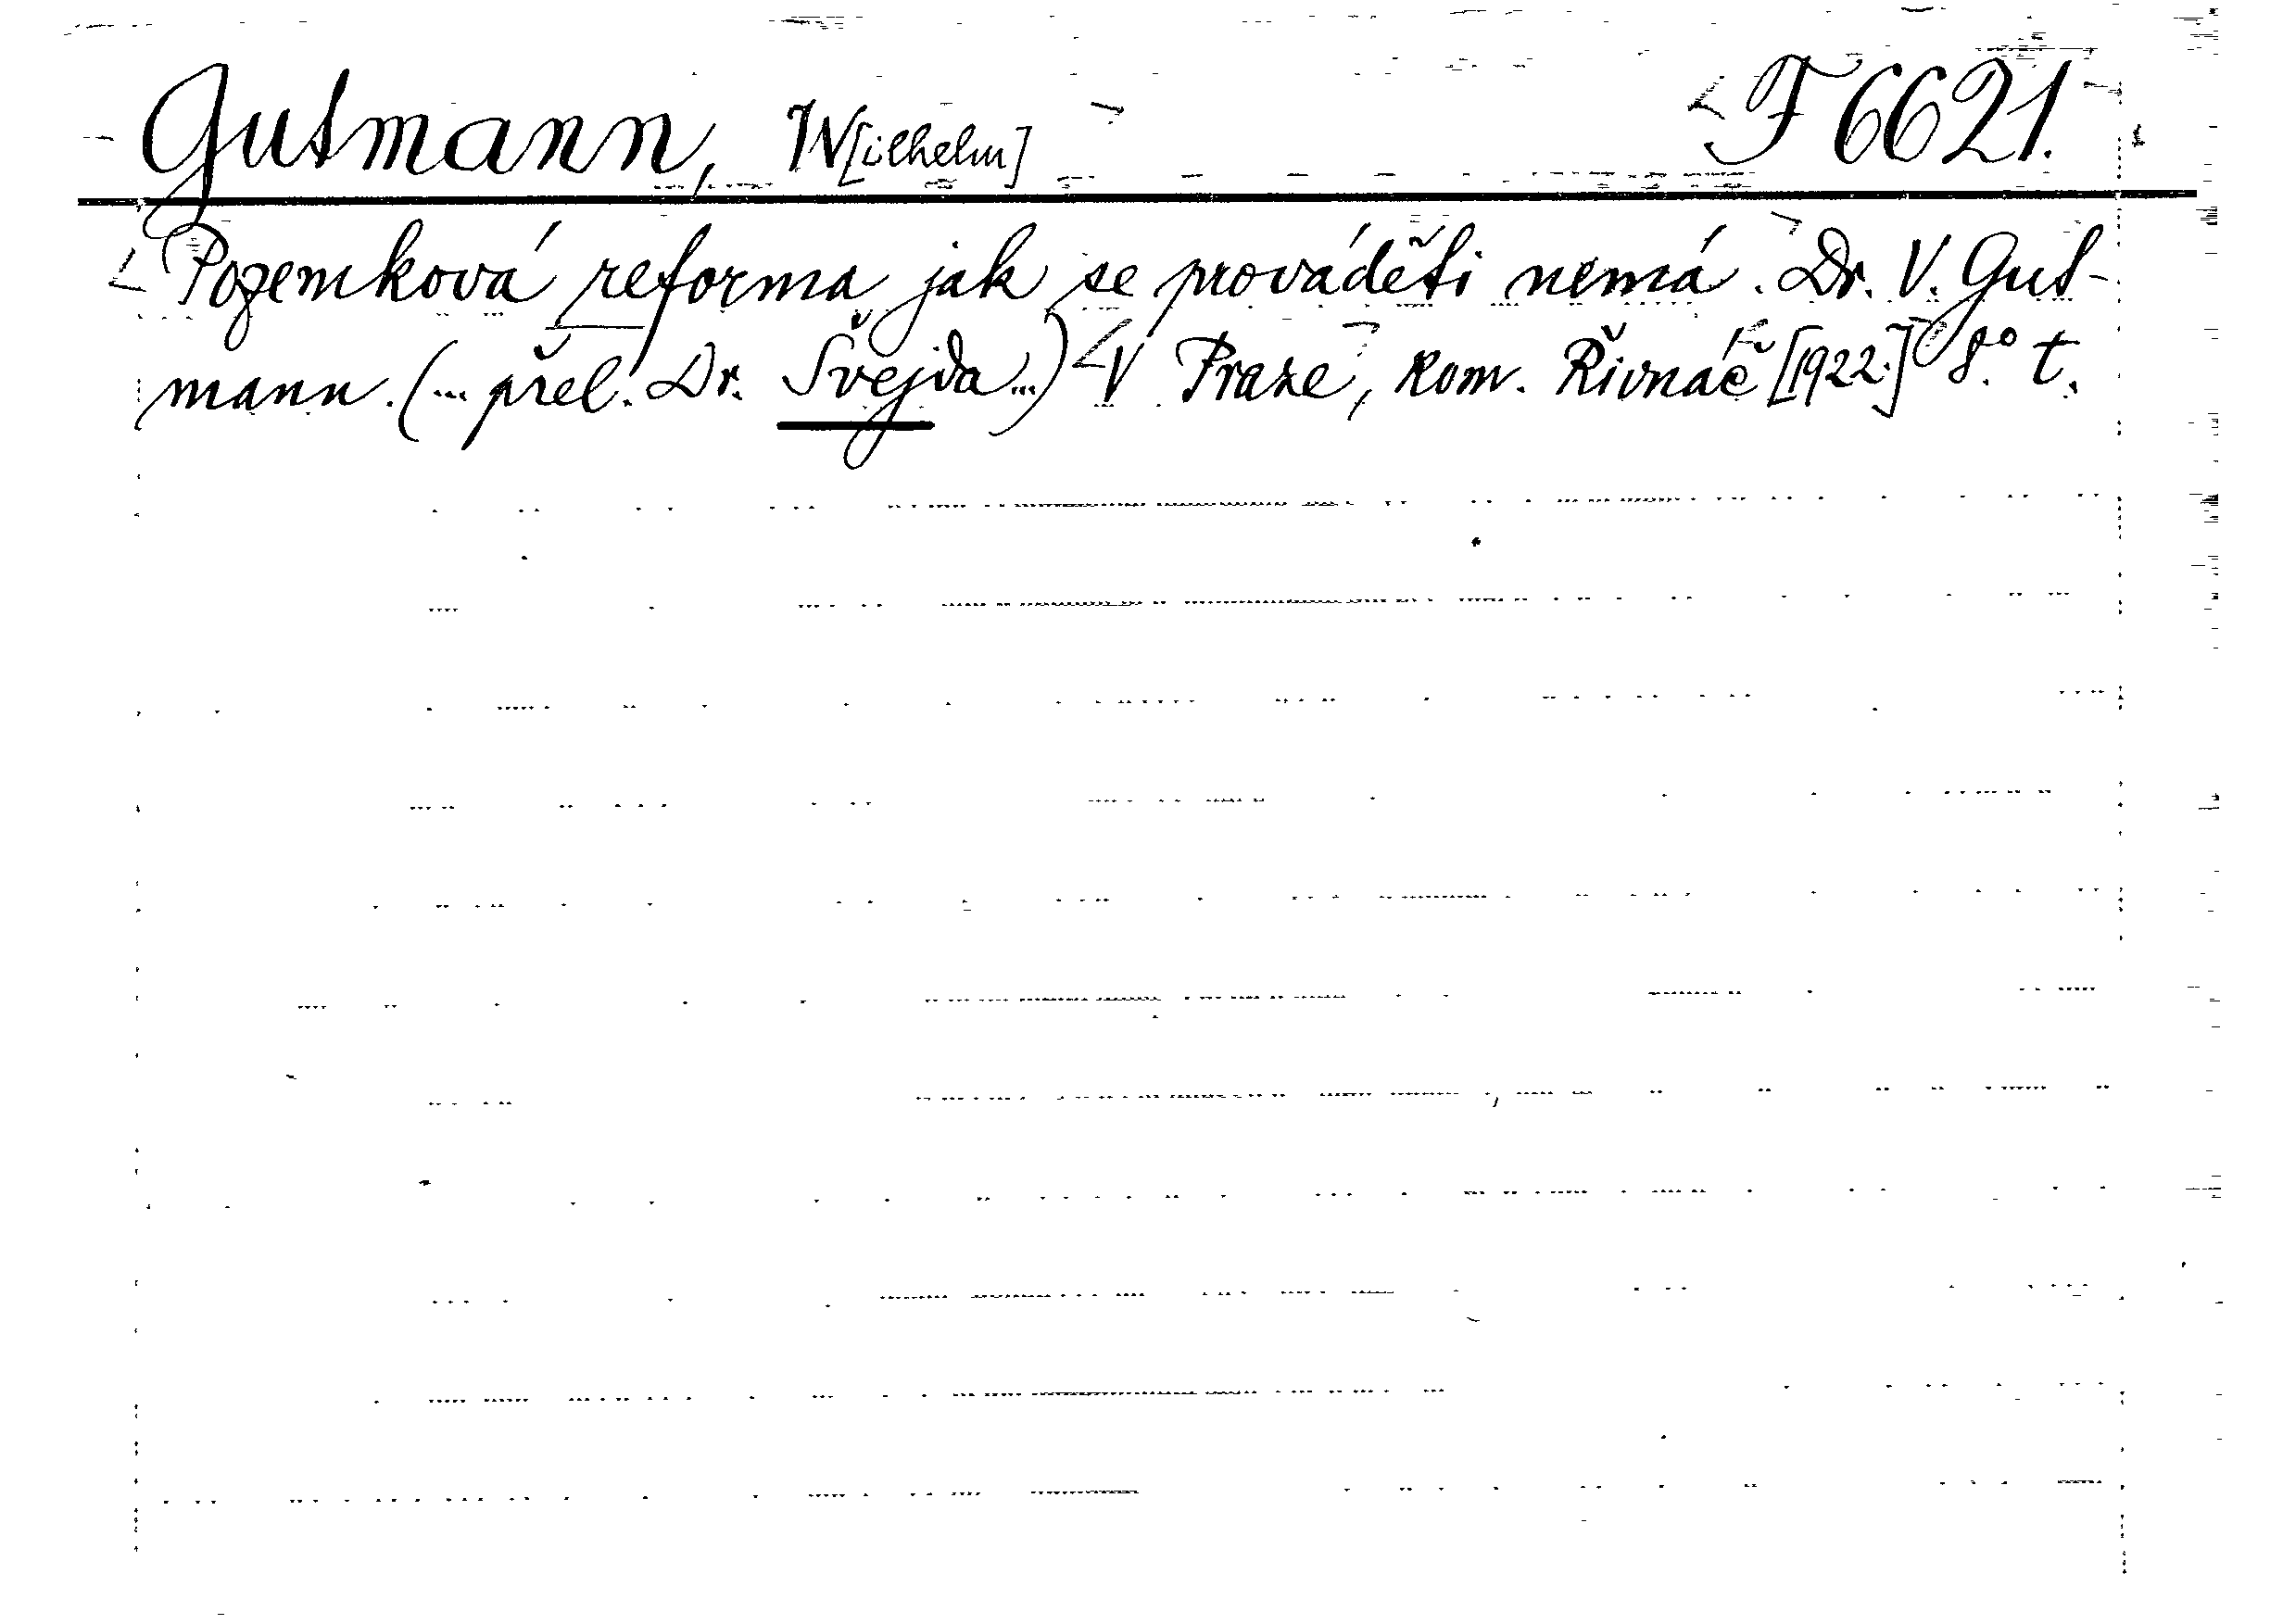 Gutmann, W[ilhelm] F 6621.
Pozemková reforma jak se prováděti nemá. Dr. V. Gut-
mann. (... přel. Dr. Švejda ...) V Praze, kom. Řivnáč [1922.] 8.° t.